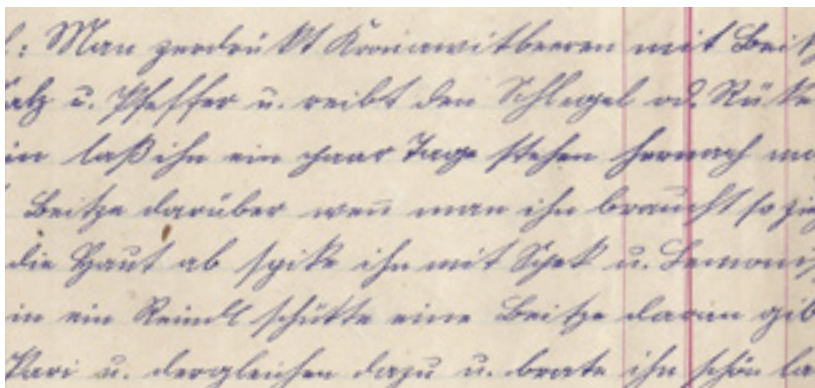 : Man zerdrükt Kronawitbeeren mit Beitz
alz u. Pfeffer u. reibt den Schlegel od. Rüke
in laß ihn ein paar Tage stehen hernach ma
Beitze darüber weñ man ihn braucht so zie
die Haut ab spike ihn mit Spek u. Lemoni
in ein Reindl schütte eine Beitze daran gib
Pari u. dergleichen dazu u. brate ihn schön la